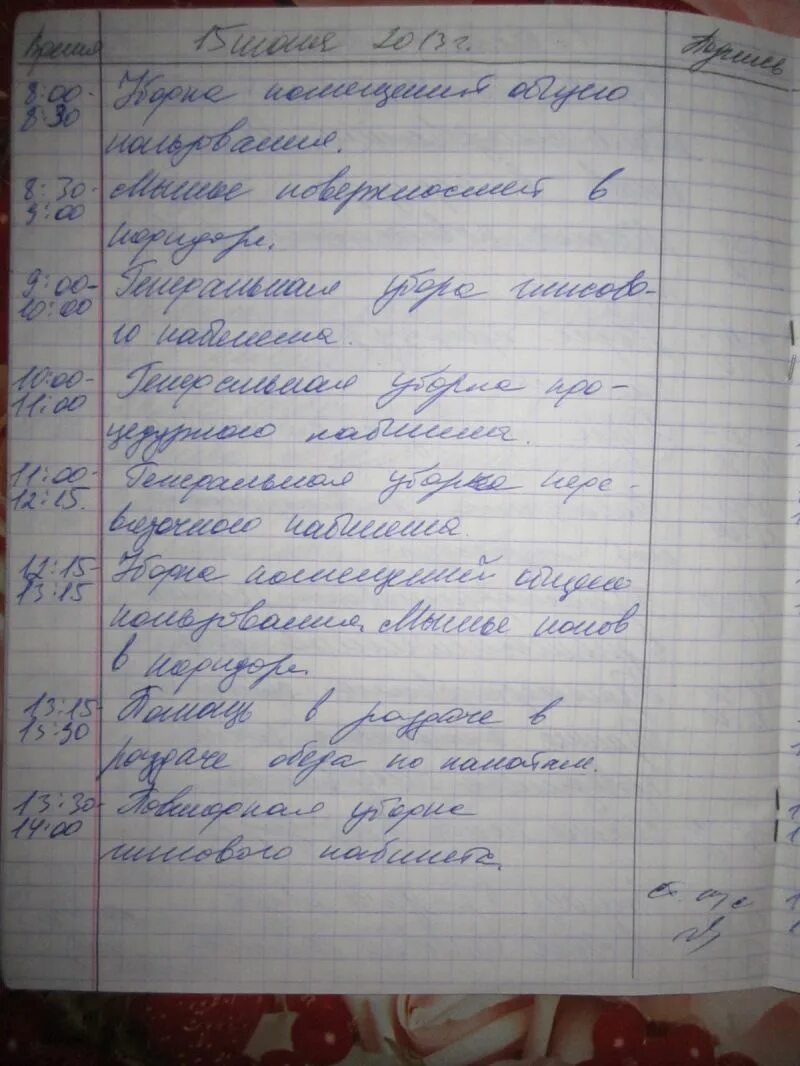 Время 15 июня 2013г. Подпись
8:00- Уборка помещений общего
8:30 пользования.
8:30- Мытье поверхностей в
9:00 коридоре.
9:00- Генеральная убора гипсово-
10:00 го кабинета.
10:00- Генеральная уборка про-
11:00 цедурного кабинета.
11:00- Генеральная уборка пере-
12:15. вязочного кабинета.
12:15- Уборка помещений общего
13:15 пользования. Мытье полов
в коридоре.
13:15- Помощь в раздаче в
13:30 раздаче обеда по палатам.
13:30- Повторная уборка
14:00 гипсового кабинета.